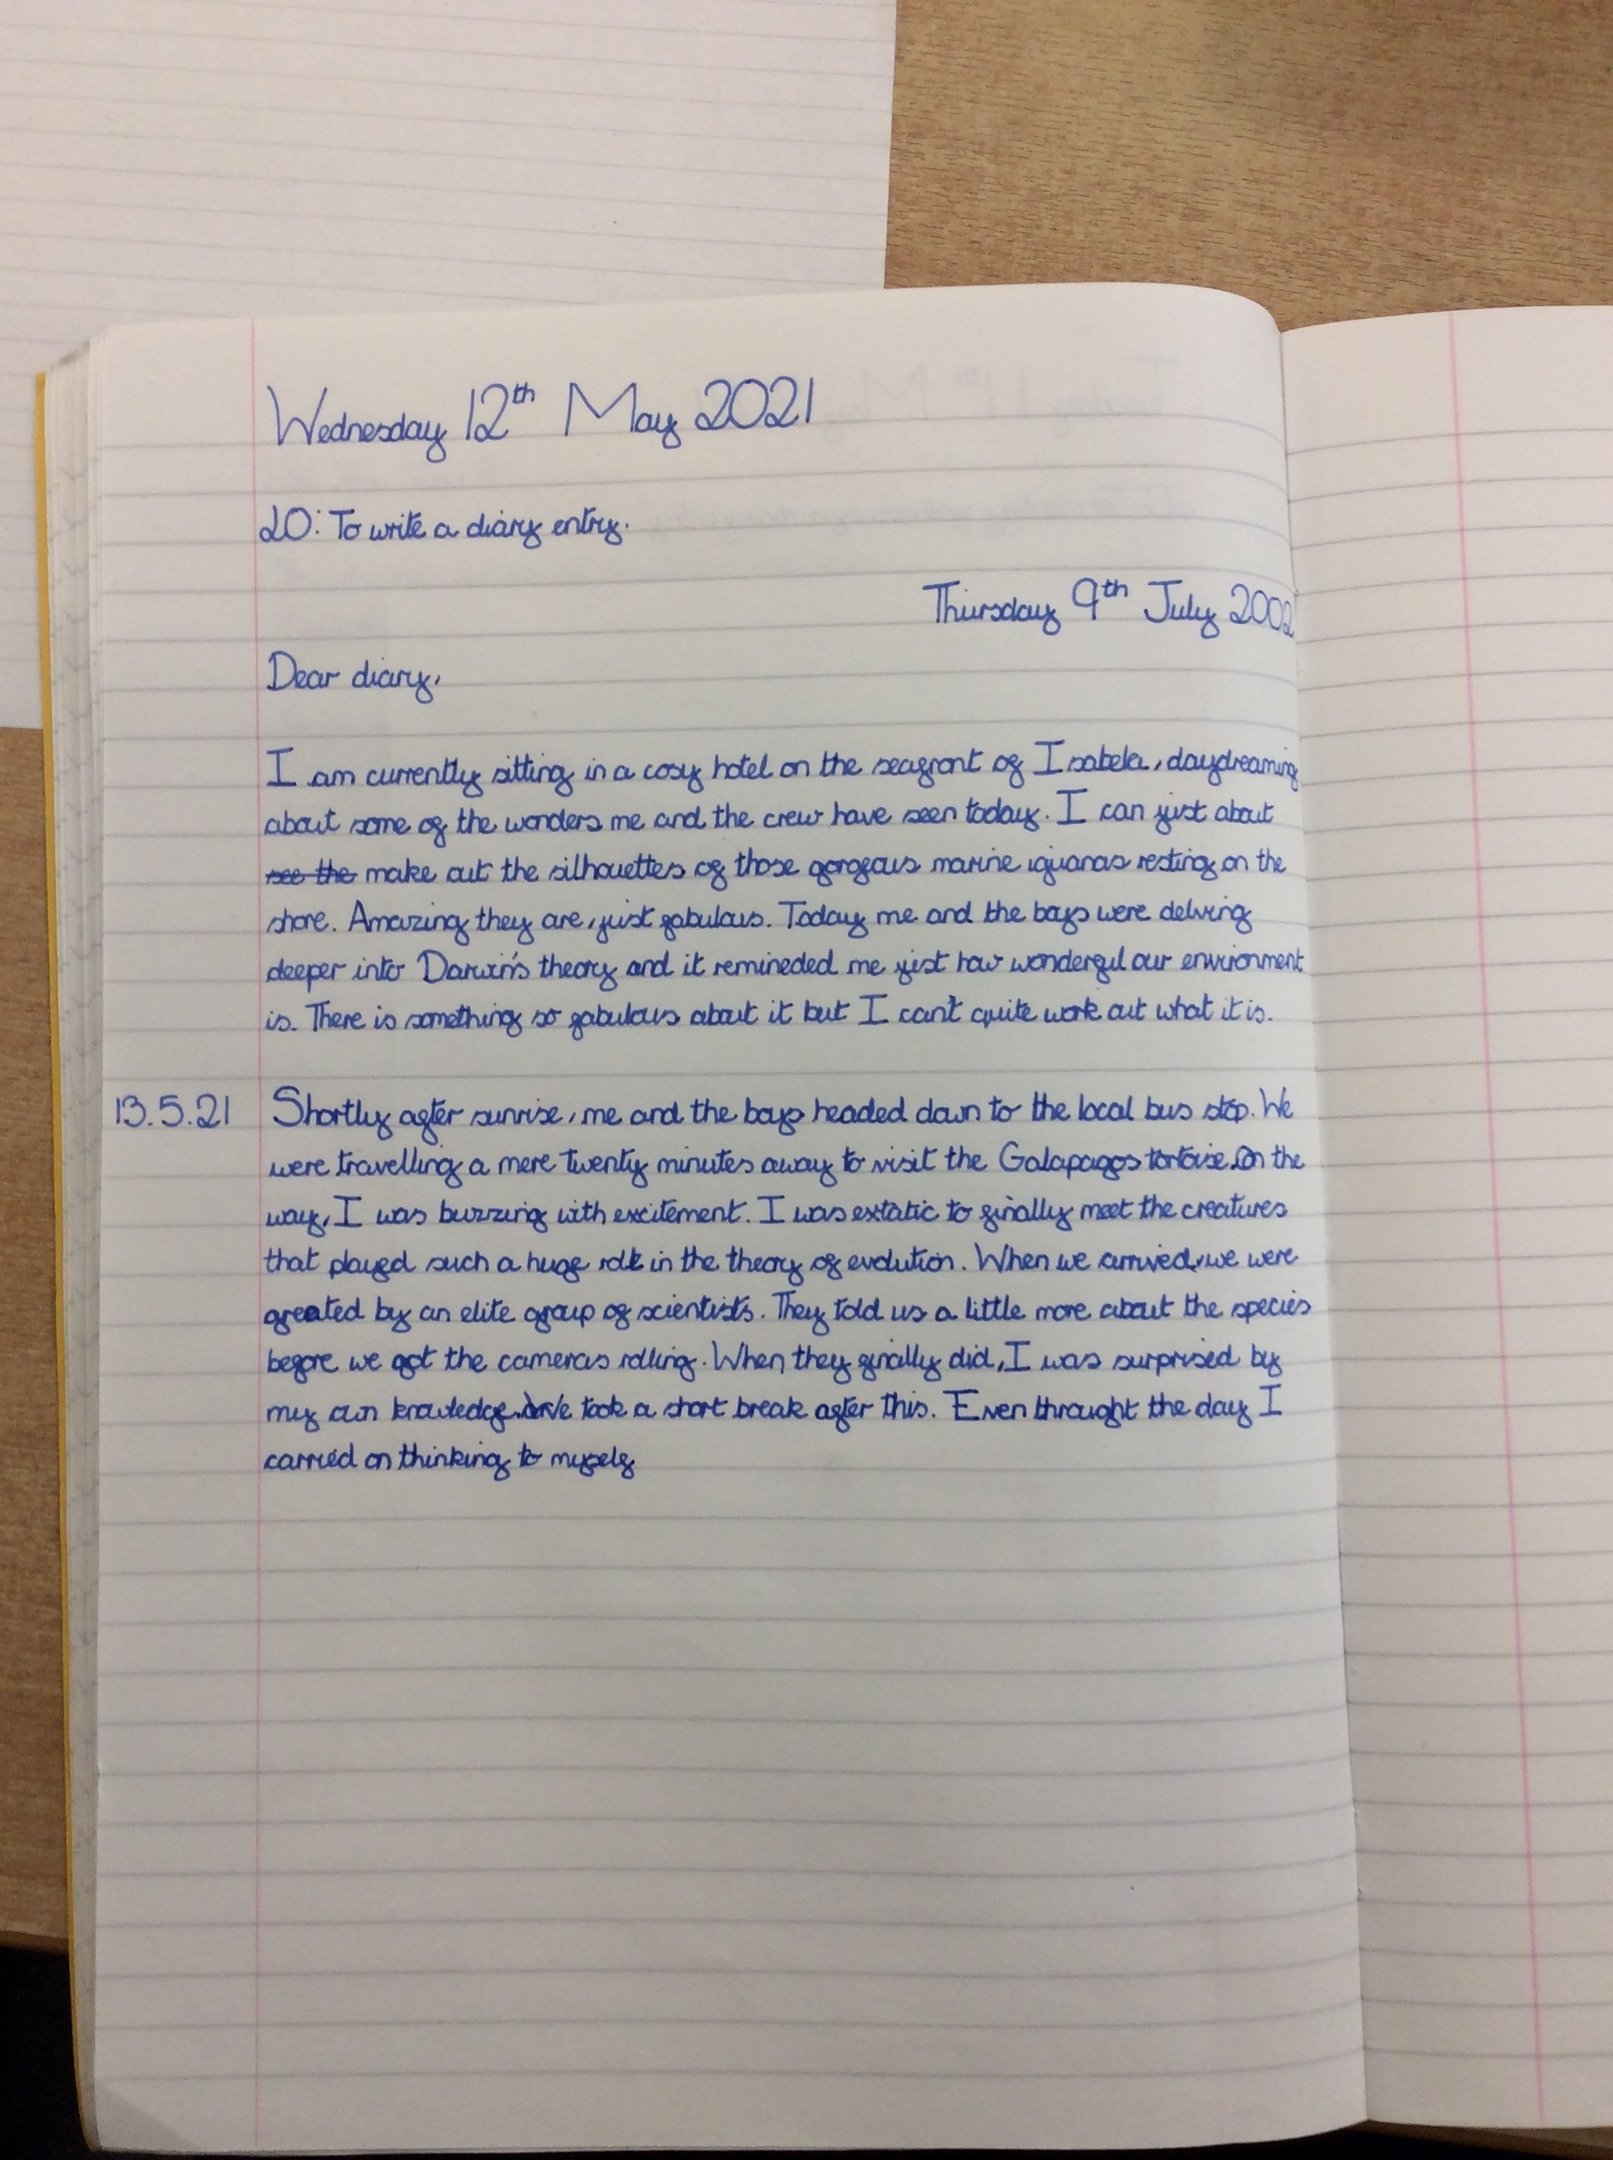 Wednesday 12th May 2021
LO: To write a diary entry.
Thursday 9th July 2002
Dear diary,
I am currently sitting in a cosy hotel on the seafront of Isabela, daydreaming
about some of the wonders me and the crew have seen today. I can just about
see the make out the silhouettes of those gorgeous marine iguanas resting on the
shore. Amazing they are, just fabulous. Today me and the boys were delving
deeper into Darwin's theory and it remineded me just how wonderful our environment
is. There is something so fabulous about it but I can't quite work out what it is.
13.5.21 Shortly after sunrise, me and the boys headed down to the local bus stop. We
were travelling a mere twenty minutes away to visit the Galapagos tortoise. On the
way, I was buzzing with excitement. I was extatic to finally meet the creatures
that played such a huge role in the theory of evolution. When we arrived, we were
greated by an elite group of scientists. They told us a little more about the species
before we got the cameras rolling. When they finally did, I was surprised by
my own knowledge. We took a short break after this. Even throught the day I
carried on thinking to myself